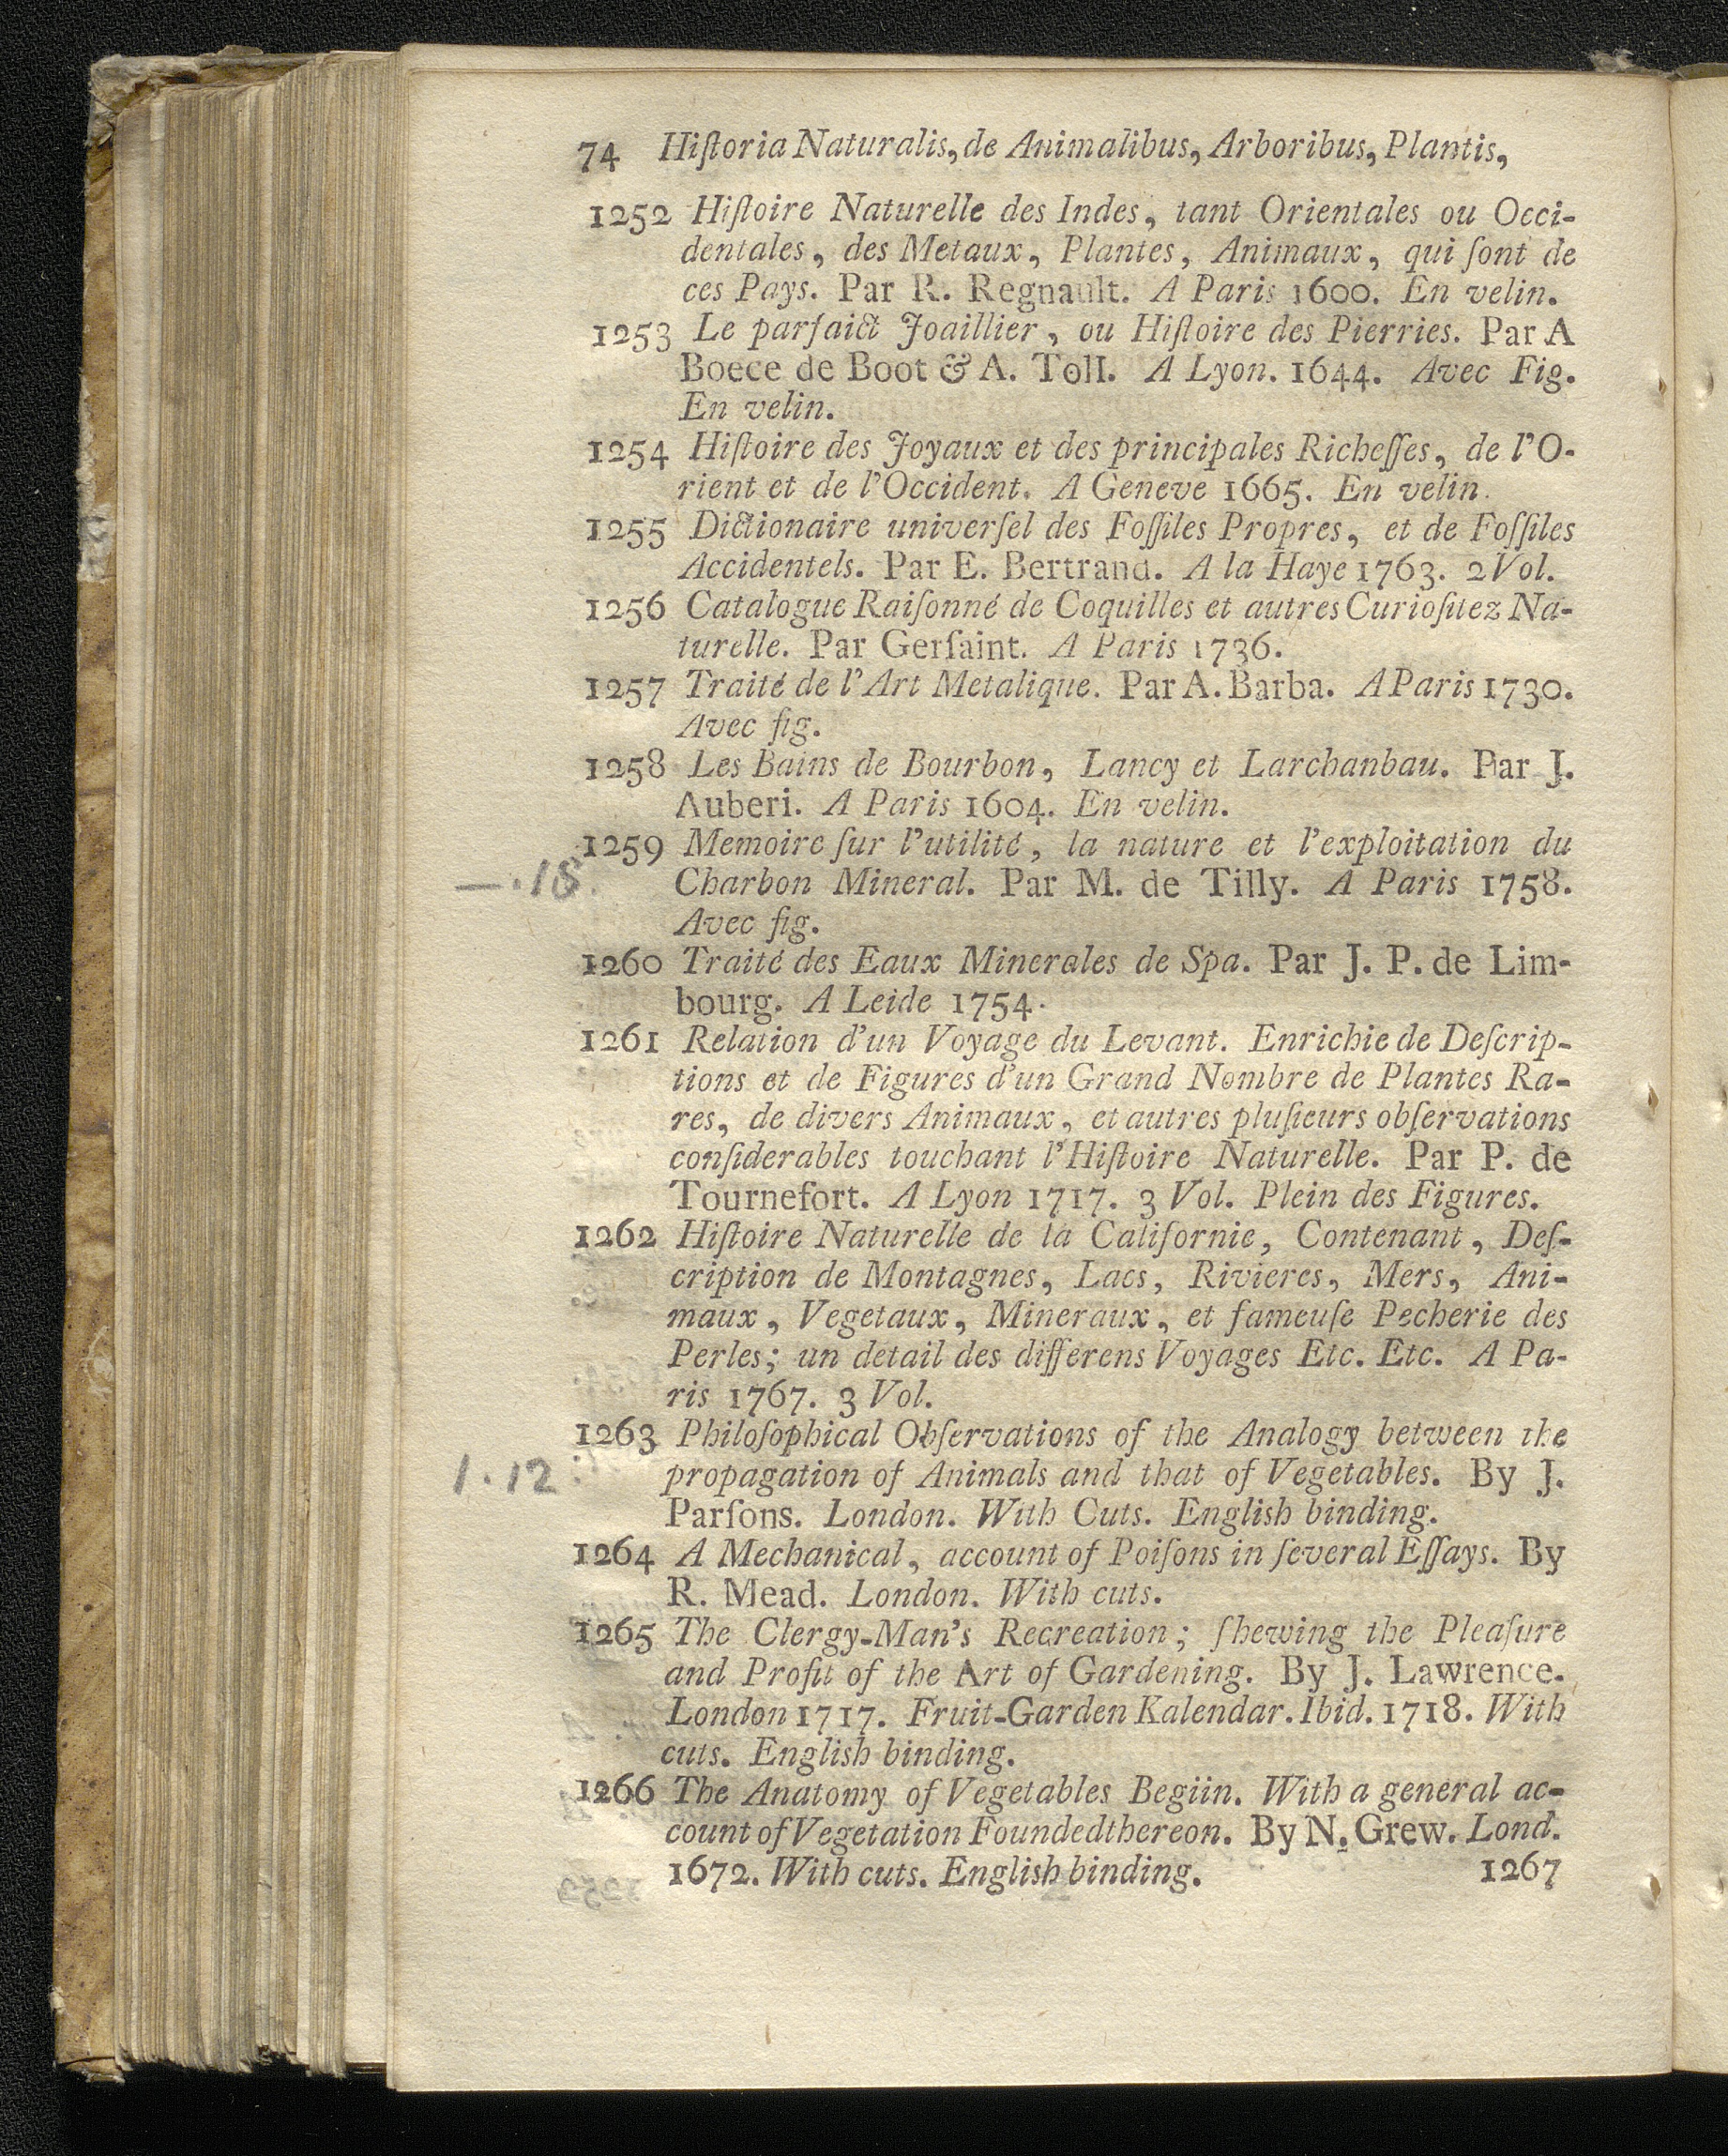 74 Hiſtoria Naturalis, de Animalibus, Arboribus, Plantis,
1252 Hiſtoire Naturelle des Indes, tant Orientales ou Occi-
dentales, des Metaux, Plantes, Animaux, qui ſont de
ces Pays. Par R. Regnault. A Paris 1600. En velin.
1253 Le parfaict Joaillier, ou Hiſtoire des Pierries. Par A
Boece de Boot & A. Toll. A Lyon. 1644. Avec Fig.
En velin.
1254 Hiſtoire des Joyaux et des principales Richeſſes, de l'O-
rient et de l'Occident. A Geneve 1665. En velin.
1255 Dictionaire univerſel des Foſſiles Propres, et de Foſſiles
Accidentels. Par E. Bertrand. A la Haye 1763. 2 Vol.
1256 Catalogue Raiſonné de Coquilles et autres Curioſitez Na-
turelle. Par Gerſaint. A Paris 1736.
1257 Traité de l'Art Metalique. Par A. Barba. A Paris 1730.
Avec fig.
1258 Les Bains de Bourbon, Lancy et Larchanbau. Par J.
Auberi. A Paris 1604. En velin.
1259 Memoire ſur l'utilité, la nature et l'exploitation du
—.18. Charbon Mineral. Par M. de Tilly. A Paris 1758.
Avec fig.
1260 Traité des Eaux Minerales de Spa. Par J. P. de Lim-
bourg. A Leide 1754.
1261 Relation d'un Voyage du Levant. Enrichie de Deſcrip-
tions et de Figures d'un Grand Nombre de Plantes Ra-
res, de divers Animaux, et autres pluſieurs obſervations
conſiderables touchant l'Hiſtoire Naturelle. Par P. de
Tournefort. A Lyon 1717. 3 Vol. Plein des Figures.
1262 Hiſtoire Naturelle de la Californie, Contenant, Deſ-
cription de Montagnes, Lacs, Rivieres, Mers, Ani-
maux, Vegetaux, Mineraux, et fameuſe Pecherie des
Perles; un detail des differens Voyages Etc. Etc. A Pa-
ris 1767. 3 Vol.
1263 Philoſophical Obſervations of the Analogy between the
1.12 propagation of Animals and that of Vegetables. By J.
Parſons. London. With Cuts. English binding.
1264 A Mechanical, account of Poiſons in ſeveral Eſſays. By
R. Mead. London. With cuts.
1265 The Clergy-Man's Recreation; ſhewing the Pleaſure
and Profit of the Art of Gardening. By J. Lawrence.
London 1717. Fruit-Garden Kalendar. Ibid. 1718. With
cuts. English binding.
1266 The Anatomy of Vegetables Begiin. With a general ac-
count of Vegetation Foundedthereon. By N. Grew. Lond.
1672. With cuts. English binding. 1267